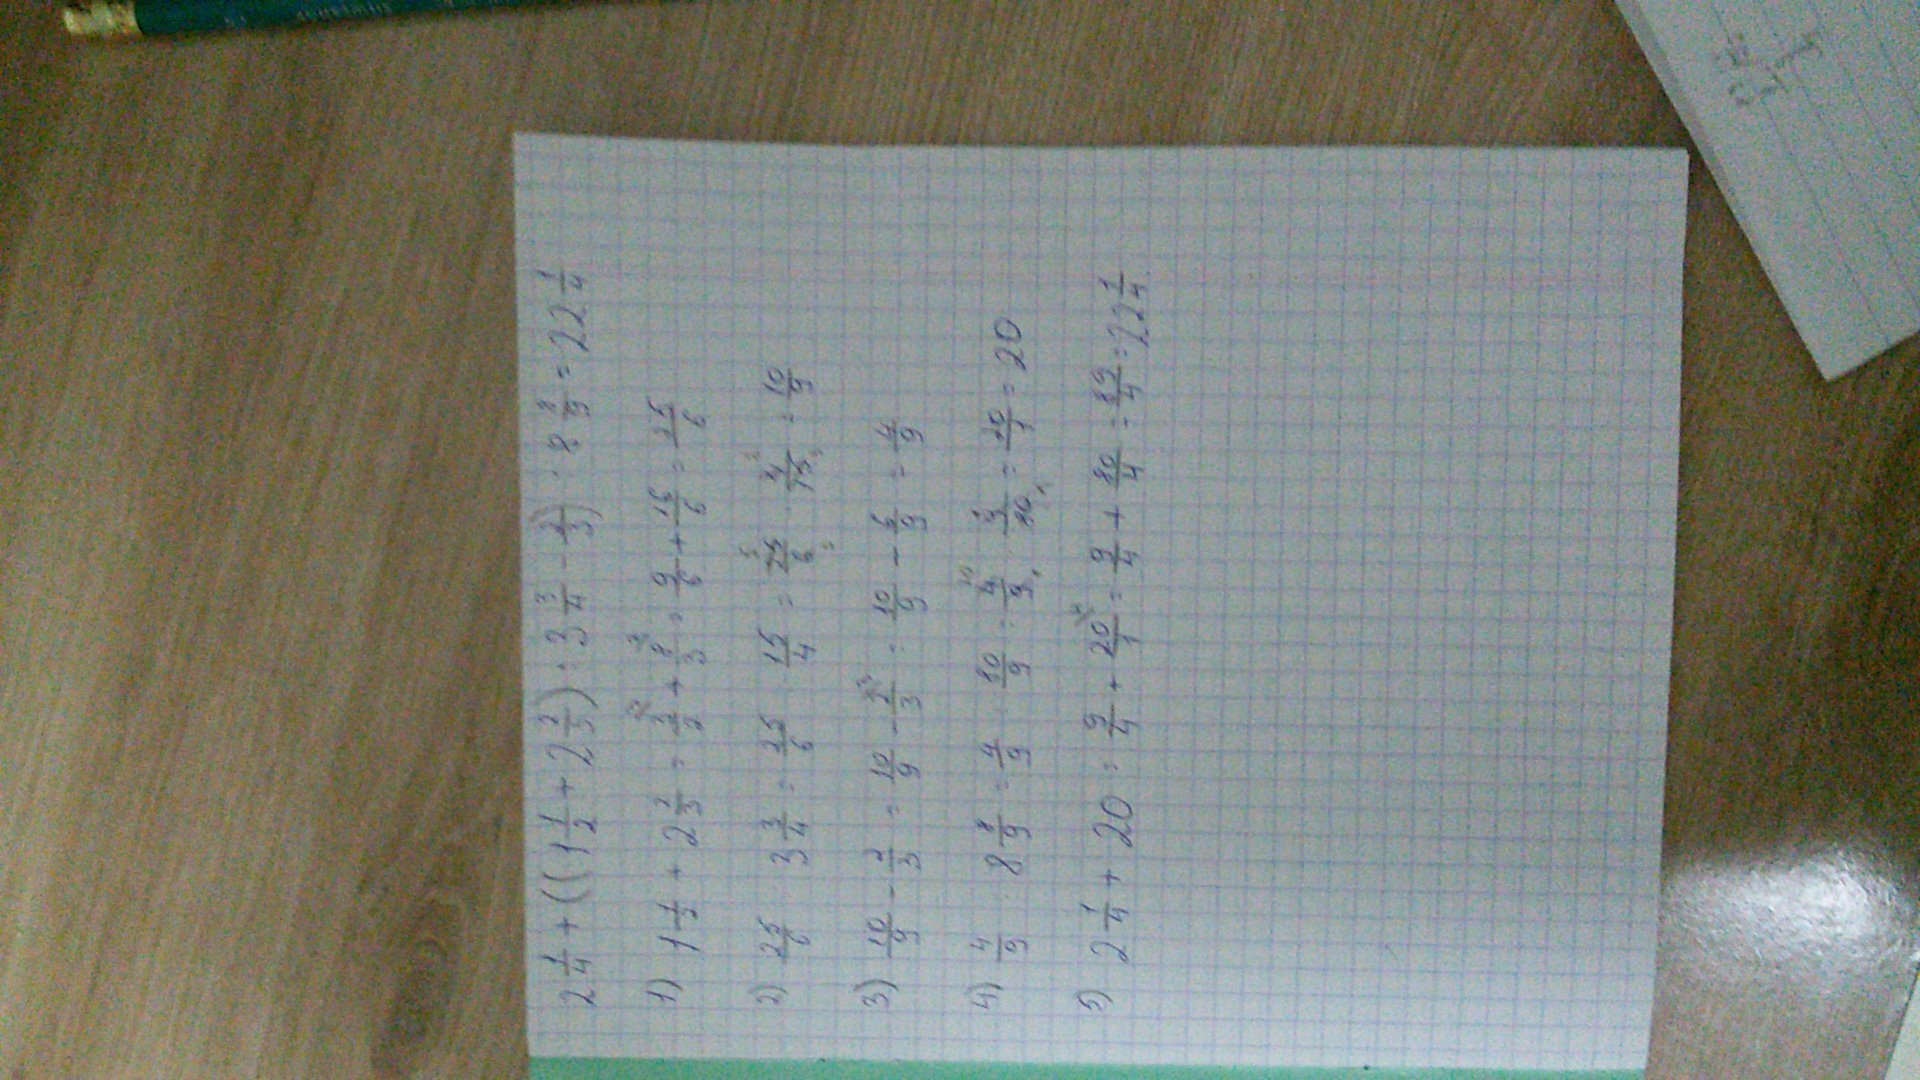 2 1/4 + ((1 1/2 + 2 2/3) : 3 3/4 - 2/3) : 8 8/9 = 22 1/4
1) 1 1/2 + 2 2/3 = 3/2 + 8/3 = 9/6 + 16/6 = 25/6
2) 25/6 : 3 3/4 = 25/6 : 15/4 = 25/6 · 4/15 = 10/9
3) 10/9 - 2/3 = 10/9 - 2/3 = 10/9 - 6/9 = 4/9
4) 4/9 : 8 8/9 = 4/9 : 80/9 = 4/9 · 9/80 = 20/1 = 20
5) 2 1/4 + 20 = 9/4 + 20/1 = 9/4 + 80/4 = 89/4 = 22 1/4